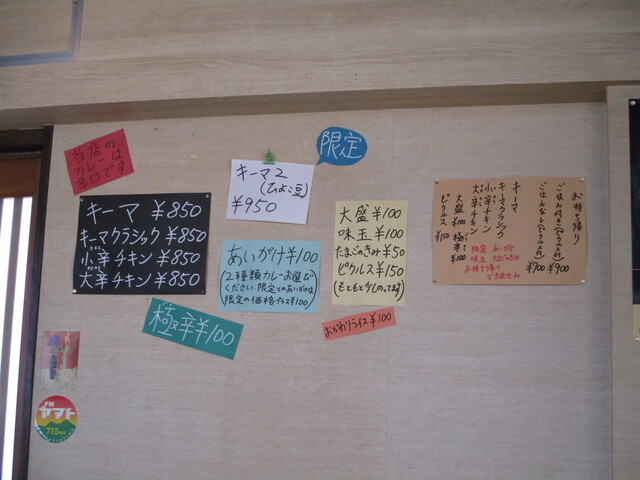 当店の
カレーは
辛口です
キーマ ¥850
キーマクラシック ¥850
小辛チキン ¥850
大辛チキン ¥850
極辛¥100
限定
キーマ2
(ひよこ豆)
¥950
あいがけ¥100
(2種類カレーお選び
ください.限定とのあいがけは
限定の価格プラス¥100)
大盛¥100
味玉¥100
たまごのきみ¥50
ピクルス¥150
(もともと少しのってます)
おかわりライス¥100
お持ち帰り
ごはん付き(ピクルス付) ¥900
ごはんなし(ピクルス付) ¥700
キーマ
キーマクラシック
小辛チキン
大辛チキン
大盛¥100 極辛¥100
ピクルス ¥150
限定 あいがけ
味玉 たまごのきみ
お持ち帰り
できません
FM
ヤマト
77.5MHz